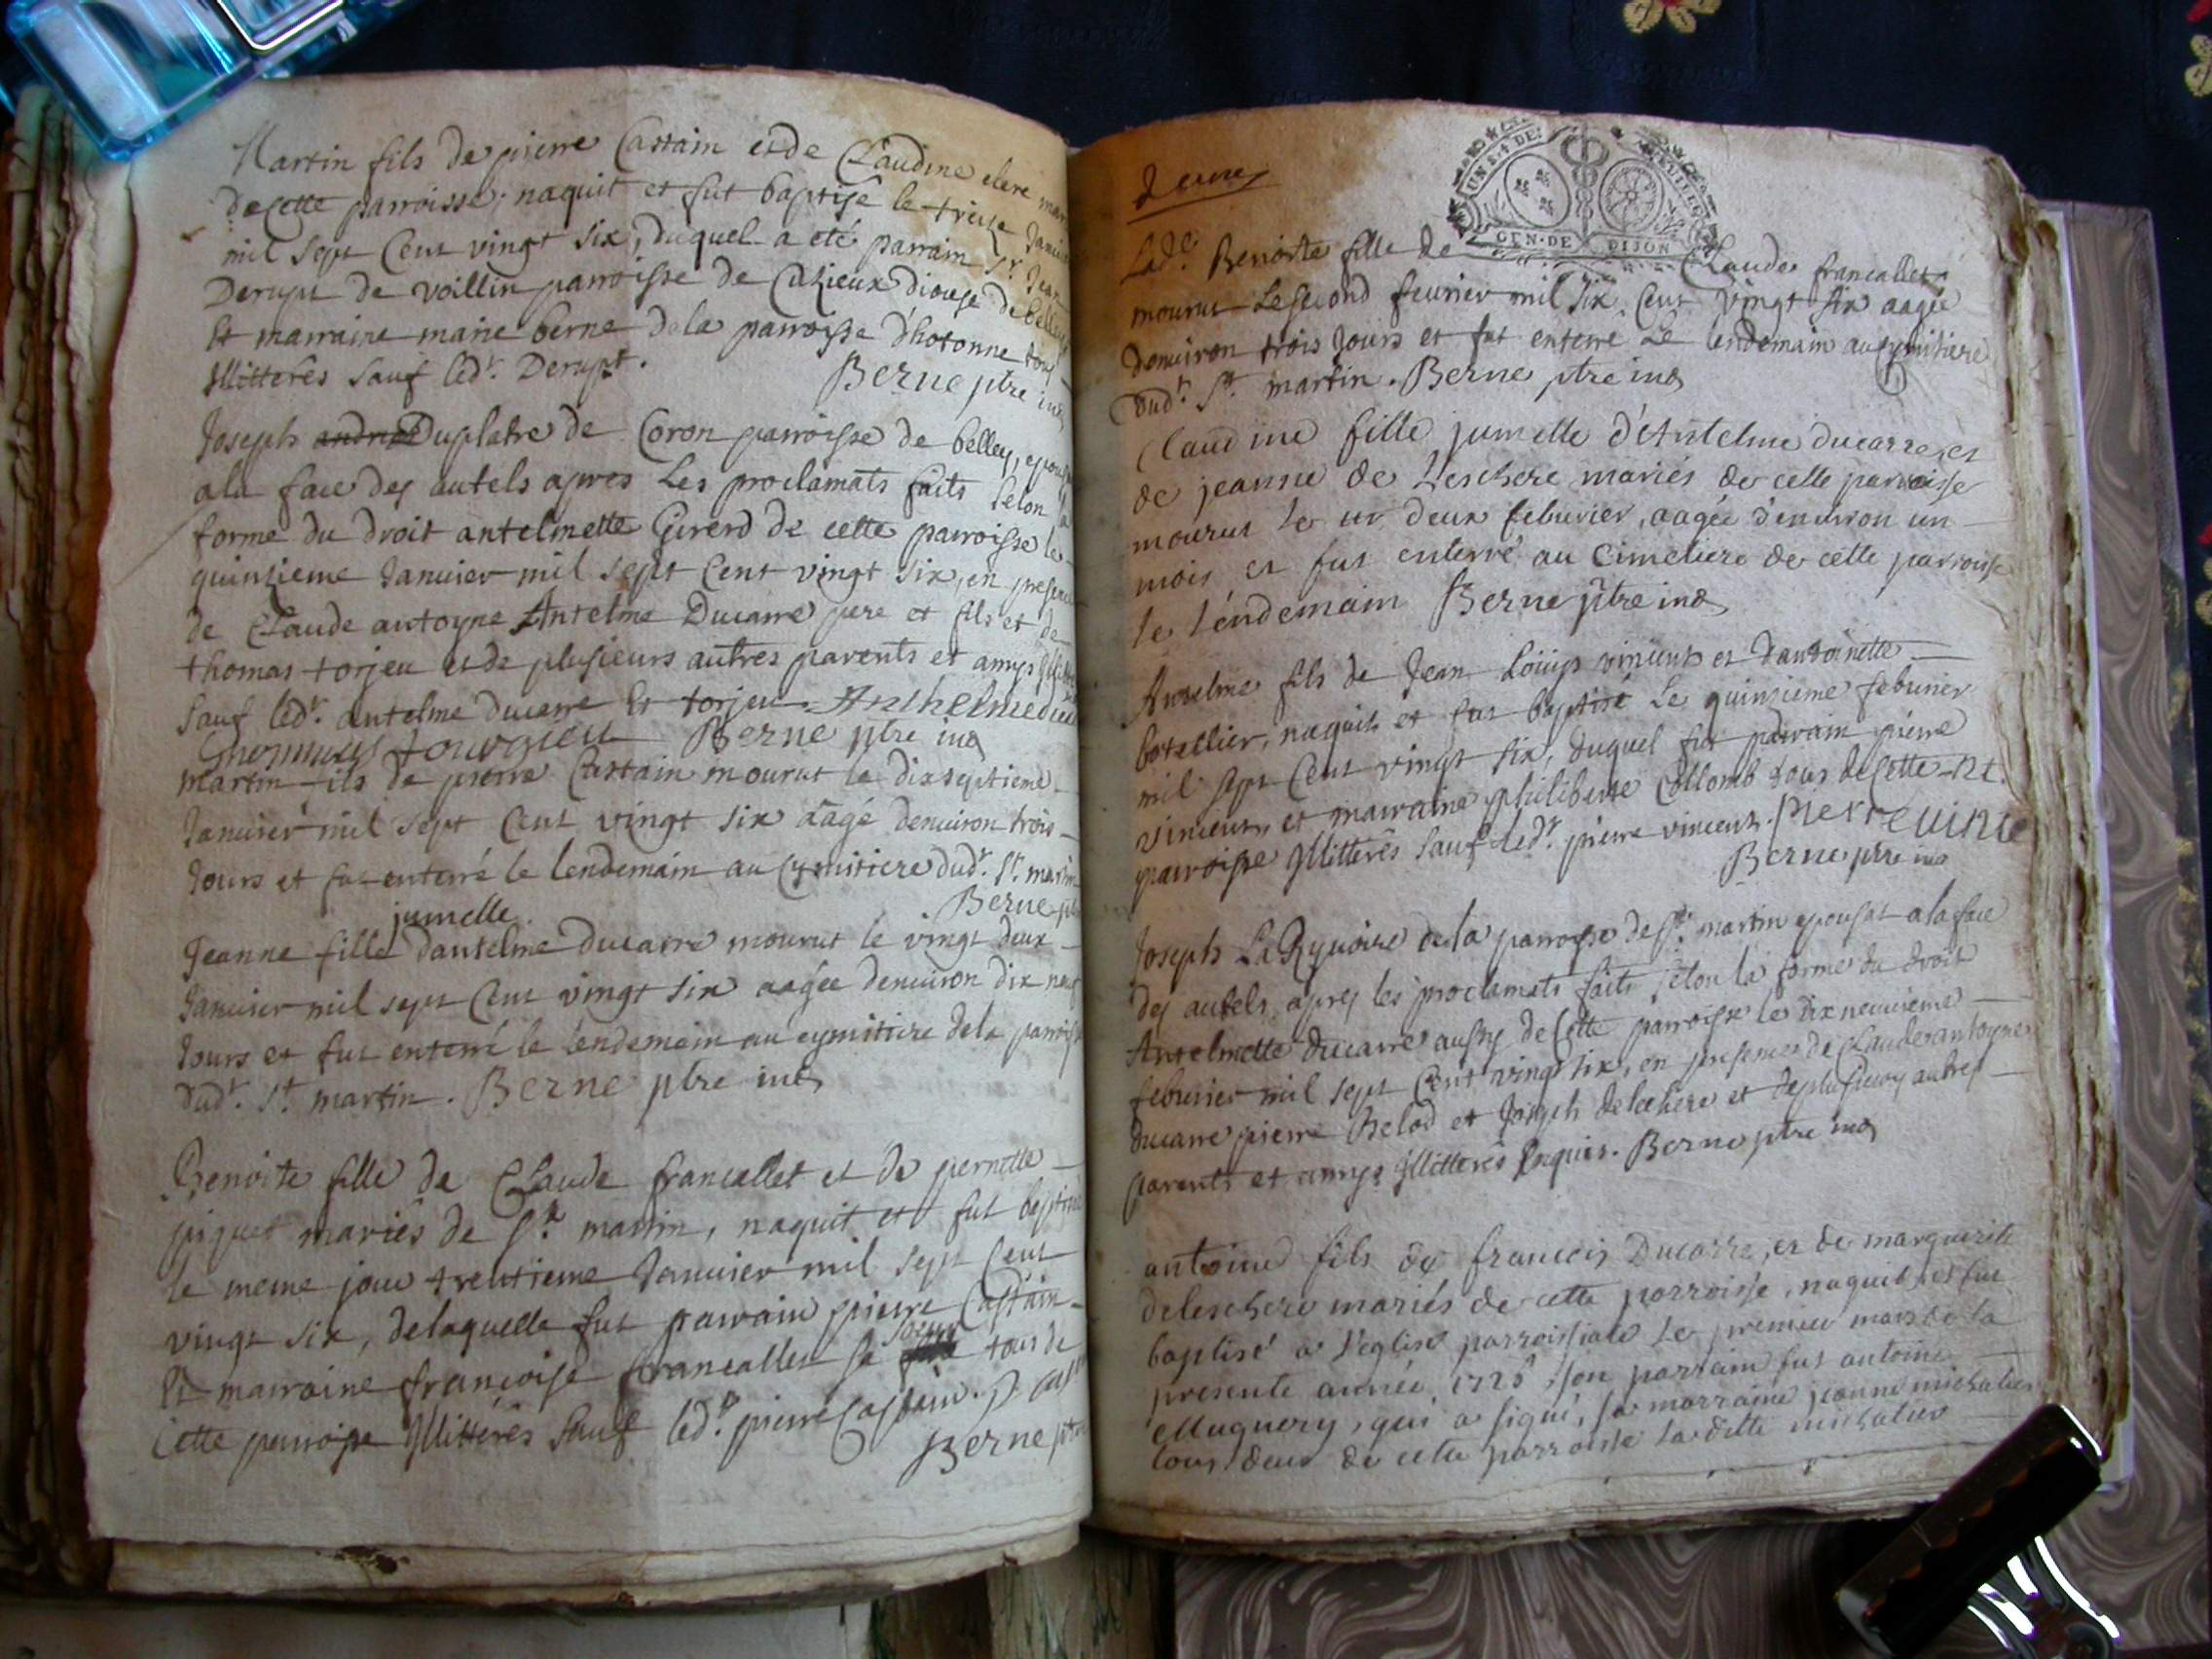 Martin fils de pierre Castain et de Claudine clere mar
de cette parroisse, naquit et fut baptisé le treize Janvie
mil sept Cent vingt six, duquel a eté parrain Sr. Jean
Derupt de voillin parroisse de Cuzieux diocese de belley
Et marraine marie berne de la parroisse d'hotonne tous
Illitterés sauf led.t Derupt.
Berne ptre
Joseph Duplatre de Coron parroisse de belley, epous
a la face des autels apres Les proclamats faits selon la
forme du droit antelmette Girerd de cette parroisse le
quinzieme Janvier mil sept Cent vingt six, en presence
de Claude antoyne Antelme Ducarre pere et fils et de
thomas torjeu et de plusieurs autres parents et amys
Sauf led.t antelme ducarre Et torjeu. Anthelmeduca
tourgieu Berne ptre
martin fils de pierre Castain mourut le dixseptieme
Janvier mil sept Cent vingt six aagé denviron trois
Jours et fut enterré le lendemain au Cymitiere dud.t St. martin
Berne
jumelle.
Jeanne fille dantelme ducarre mourut le vingt deux
Janvier mil sept Cent vingt six aagée denviron dix neuf
Jours et fut enterré le lendemain au cymitiere de la parroisse
dud.t St. martin. Berne ptre
Benoite fille de Claude francallet et de pernette
piquet mariés de St. martin, naquit et fut baptisé
le meme jour trentieme Janvier mil sept Cent
vingt six, de laquelle fut parrain pierre Castain
Et marraine francoise francallet sa soeur tous de
Cette parroisse Illitterés sauf led.t pierre Castain. P. cast
Berne ptre
Lad.e Benoite fille de Claude francallet
mourut Le second fevrier mil six Cent vingt six aagée
denviron trois Jours et fut enterré Le lendemain au cymitiere
dud.t St. martin. Berne ptre
UN S. 4 DE.
GEN. DE DIJON
Claudine fille jumelle d'Antelme ducarre, et
de jeanne de Leschere mariés de cette parroisse
mourut le deux feburier, aagée d'environ un
mois et fut enterré au Cimetiere de cette parroisse
le lendemain Berne ptre
Anselme fils de Jean Louys vincent et dantoinette
botellier, naquit et fut baptisé Le quinzieme feburier
mil sept Cent vingt six, duquel fut parrain pierre
vincent, et marraine philiberte Collomb tous de Cette
parroisse Illitterés sauf led.t pierre vincent. Pierre vince
Berne ptre
Joseph La Ryvoire de la parroisse de St. martin epousat a la face
des autels, apres les proclamats faits selon la forme du droit
Antelmette ducarre aussy de Cette parroisse le dix neuvieme
feburier mil sept Cent vingt six, en presence de Claude antoyne
ducarre pierre Chelod et Joseph delechere et de plusieurs autres
parents et amys Illitterés Enquis. Berne ptre
antoine fils de francois Ducarre, et de marguerite
deleschere mariés de cette parroisse, naquit, et fut
baptisé a l'eglise parroissiale le premier mars de la
presente année, 1726 son parrain fut antoine
Maguery, qui a signé, sa marraine jeanne michalier
tous deux de cette parroisse la ditte michalier